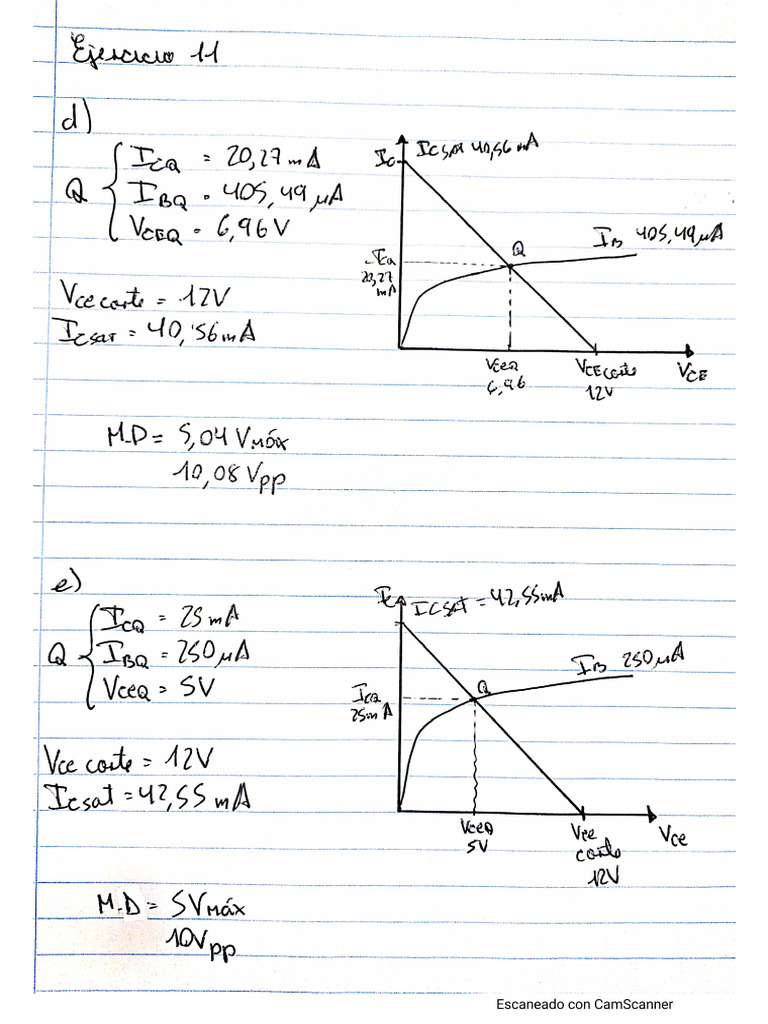 Ejercicio 11
d)
Q { ICQ = 20,27 mA
IBQ = 405,49 μA
VCEQ = 6,96 V
Vce corte = 12V
ICsat = 40,56 mA
IC ICsat 40,56 mA
IB 405,49 μA
Q
ICQ
20,27
mA
VCEQ
6,96
VCE corte
12V
VCE
M.D = 5,04 Vmáx
10,08 Vpp
e)
Q { ICQ = 25 mA
IBQ = 250 μA
VceQ = 5V
Vce corte = 12V
ICsat = 42,55 mA
IC ICsat = 42,55mA
IB 250 μA
Q
ICQ
25mA
VceQ
5V
Vce
corte
12V
Vce
M.D = 5Vmáx
10Vpp
Escaneado con CamScanner